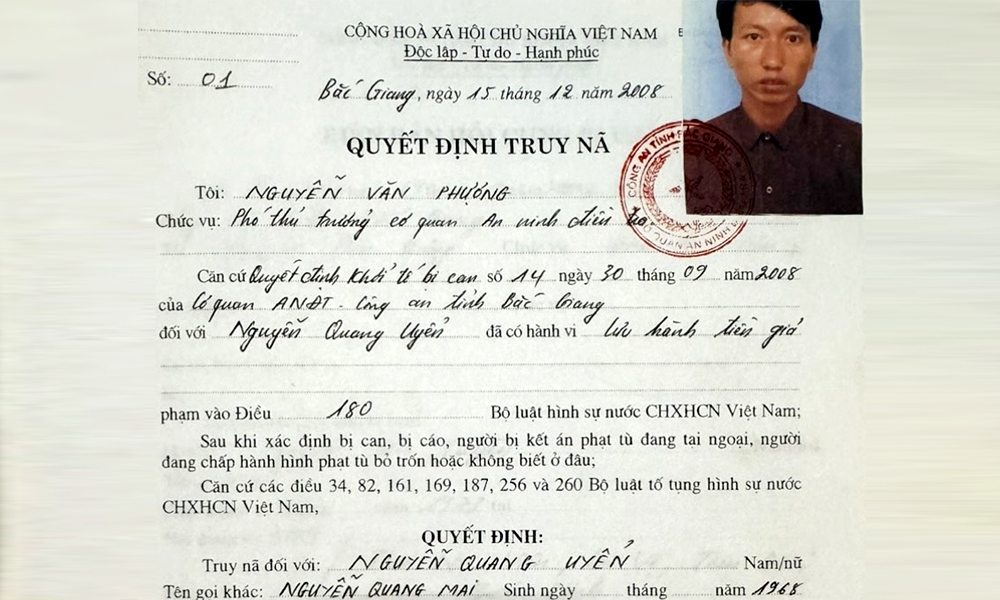 CỘNG HOÀ XÃ HỘI CHỦ NGHĨA VIỆT NAM
Độc lập - Tự do - Hạnh phúc
Số: 01
Bắc Giang, ngày 15 tháng 12 năm 2008
QUYẾT ĐỊNH TRUY NÃ
CÔNG AN TỈNH BẮC GIANG
CƠ QUAN AN NINH
Tôi: NGUYỄN VĂN PHƯƠNG
Chức vụ: Phó thủ trưởng cơ quan An ninh điều tra
Căn cứ Quyết định Khởi tố bị can số 14 ngày 30 tháng 09 năm 2008
của Cơ quan ANĐT - Công an tỉnh Bắc Giang
đối với Nguyễn Quang Uyển đã có hành vi Lưu hành tiền giả
phạm vào Điều 180 Bộ luật hình sự nước CHXHCN Việt Nam;
Sau khi xác định bị can, bị cáo, người bị kết án phạt tù đang tại ngoại, người
đang chấp hành hình phạt tù bỏ trốn hoặc không biết ở đâu;
Căn cứ các điều 34, 82, 161, 169, 187, 256 và 260 Bộ luật tố tụng hình sự nước
CHXHCN Việt Nam,
QUYẾT ĐỊNH:
Truy nã đối với: NGUYỄN QUANG UYỂN Nam/nữ
Tên gọi khác: NGUYỄN QUANG MAI Sinh ngày tháng năm 1968